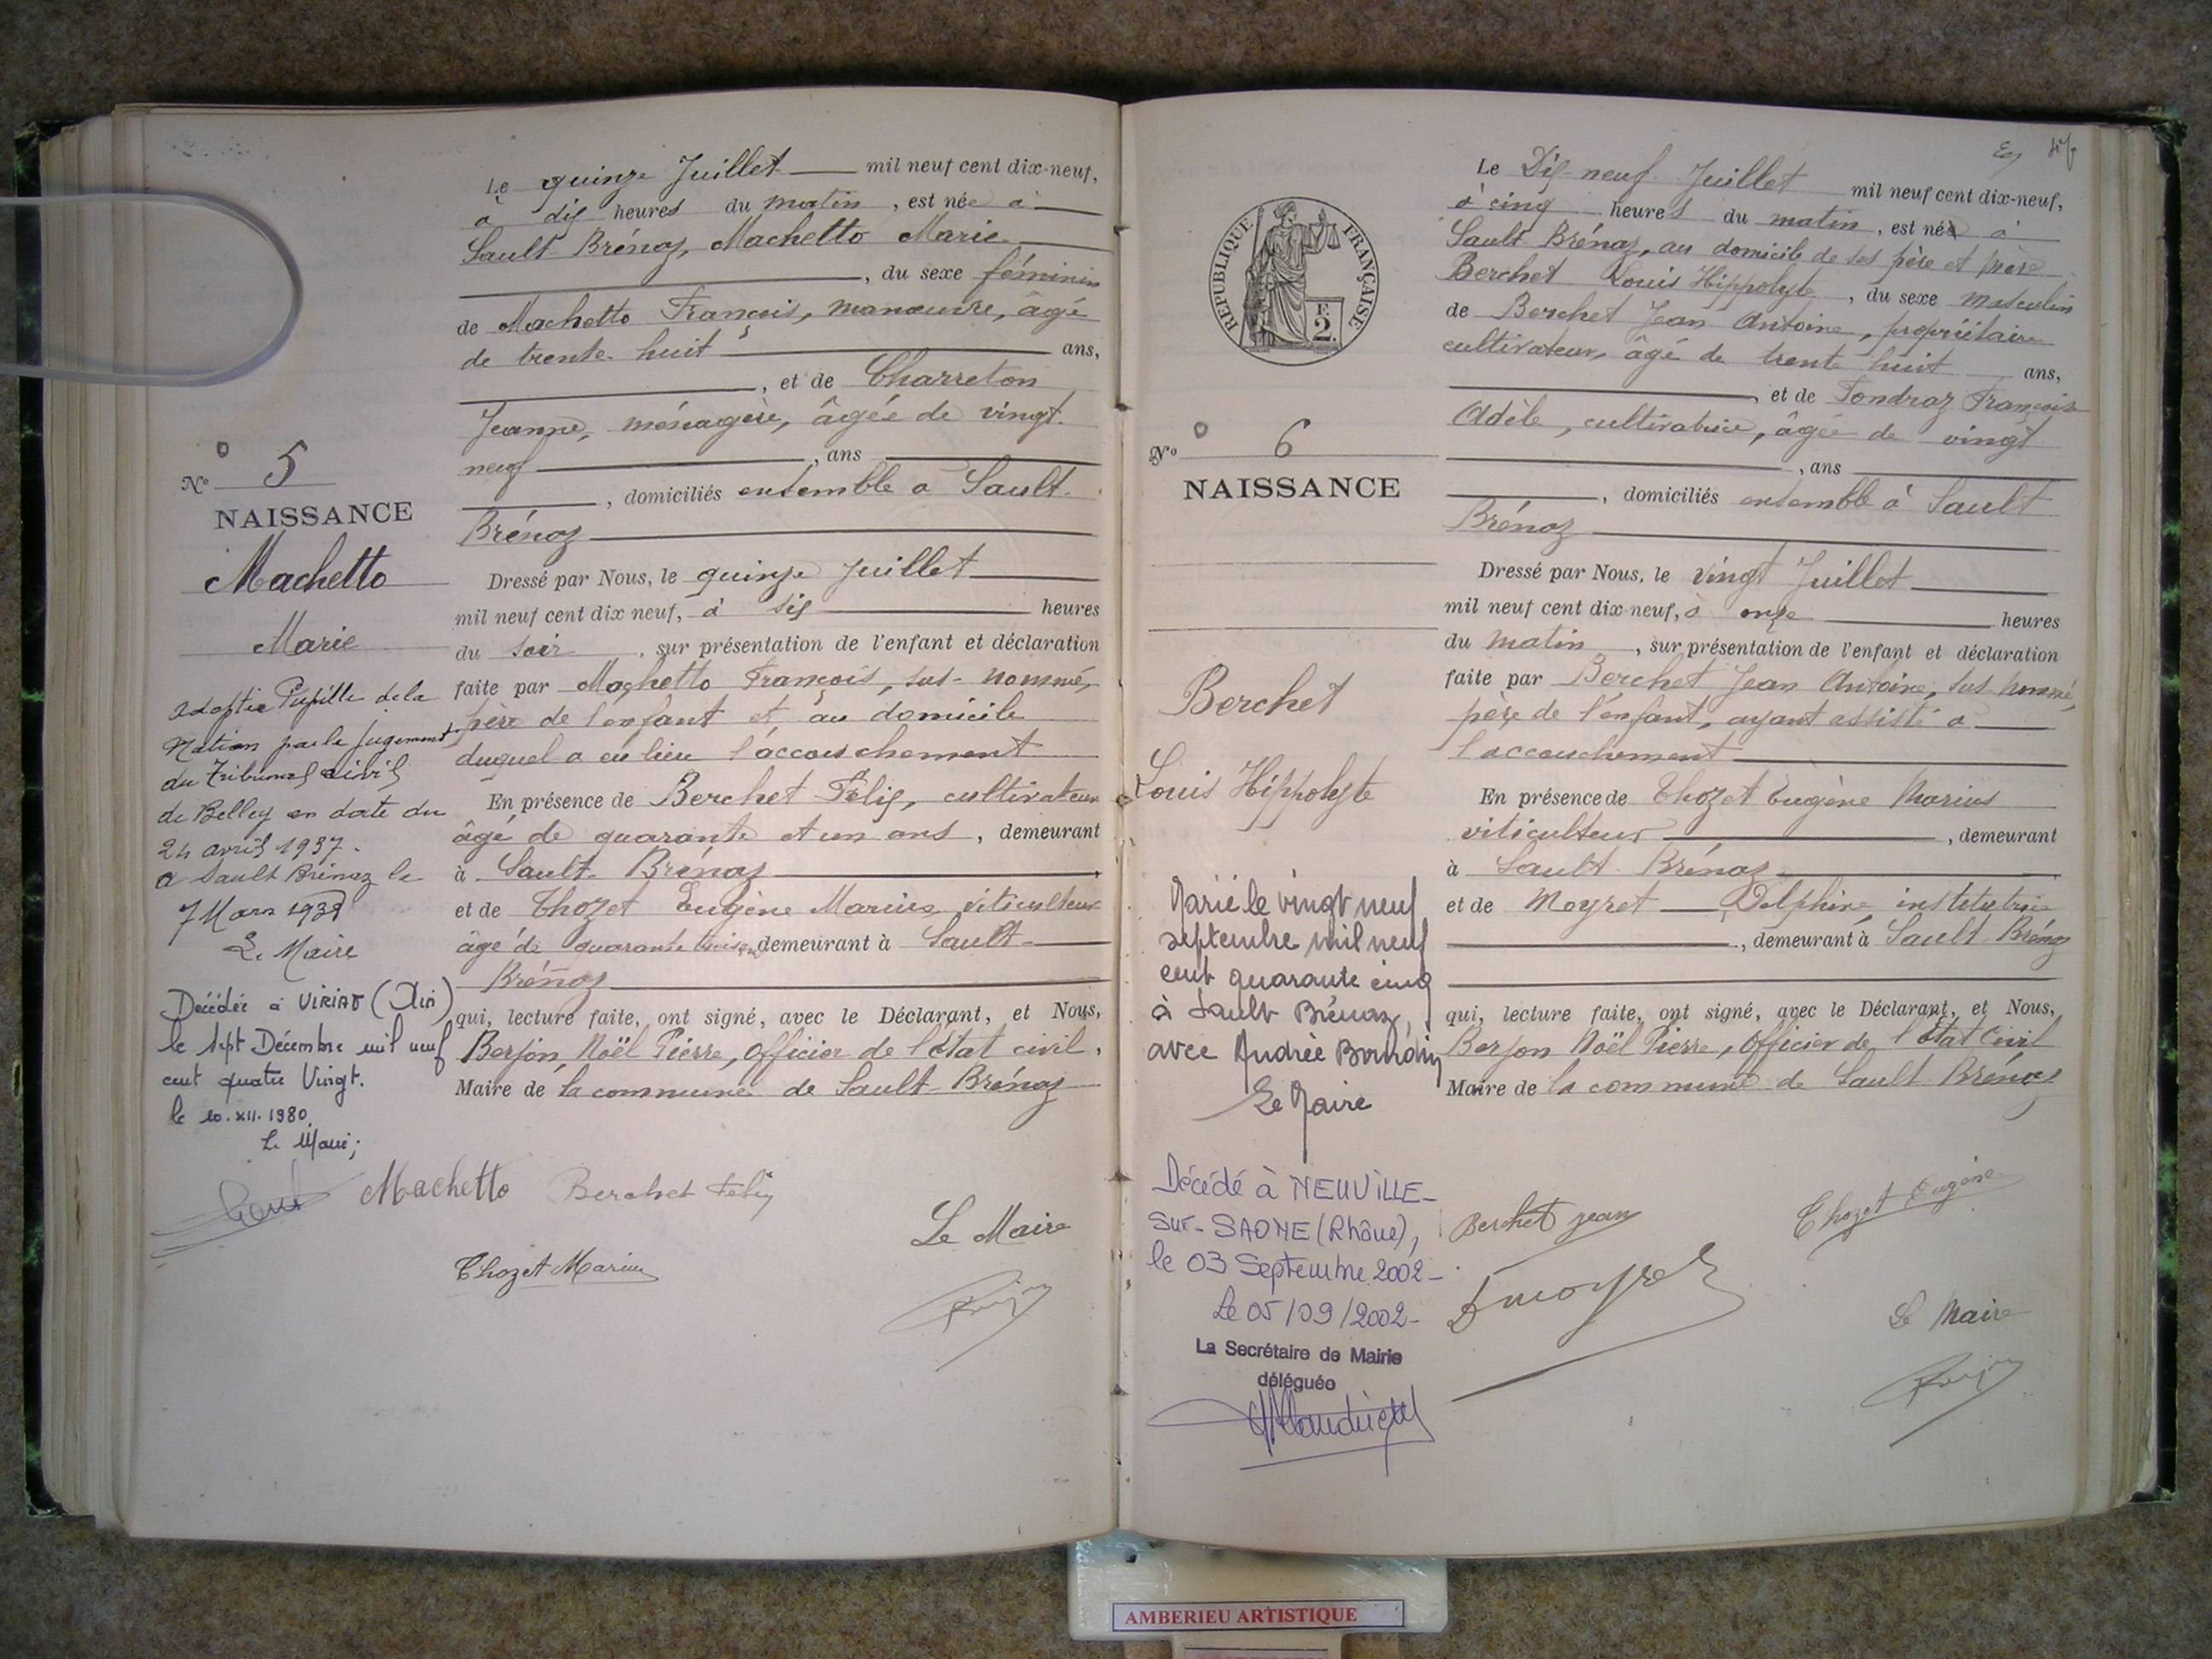 Le quinze Juillet mil neuf cent dix-neuf,
à dix heures du matin, est née à
Sault-Brénaz, Machetto Marie
, du sexe féminin
de Machetto François, manœuvre, âgé
de trente-huit ans,
, et de Charreton
Jeanne, ménagère, âgée de vingt-
neuf, ans
, domiciliés ensemble à Sault-
Brénaz
Dressé par Nous, le quinze Juillet
mil neuf cent dix neuf, à six heures
du soir, sur présentation de l'enfant et déclaration
faite par Machetto François, sus-nommé,
père de l'enfant et au domicile
duquel a eu lieu l'accouchement
En présence de Berchet Félix, cultivateur
âgé de quarante et un ans, demeurant
à Sault-Brénaz
et de Thozet Eugène Marius, viticulteur
âgé de quarante trois ans, demeurant à Sault-
Brénaz
qui, lecture faite, ont signé, avec le Déclarant, et Nous,
Berjon, Noël Pierre, Officier de l'état civil,
Maire de la commune de Sault-Brénaz
Nº 5
NAISSANCE
Machetto
Marie
adoptée Pupille de la
Nation par le jugement
du Tribunal civil
de Belley en date du
24 avril 1937.
a Sault Brénaz le
7 Mars 1938
Le Maire
Décédée à VIRIAT (Ain)
le Sept Décembre mil neuf
cent quatre Vingt.
le 10.XII.1980.
Le Maire;
Machetto Berchet Felix
Le Maire
Thozet Marius
47
Le Dix-neuf Juillet mil neuf cent dix-neuf,
à cinq heures du matin, est né à
Sault Brénaz, au domicile de ses père et mère
Berchet Louis Hippolyte, du sexe masculin
de Berchet Jean Antoine, propriétaire
cultivateur, âgé de trente huit ans,
, et de Tondraz Françoise
Adèle, cultivatrice, âgée de vingt
, ans
, domiciliés ensemble à Sault
Brénaz
Dressé par Nous, le vingt Juillet
mil neuf cent dix-neuf, à onze heures
du matin, sur présentation de l'enfant et déclaration
faite par Berchet Jean Antoine, sus nommé,
père de l'enfant, ayant assisté à
l'accouchement
En présence de Thozet Eugène Marius
viticulteur, demeurant
à Sault Brénaz
et de Moyret Delphine, institutrice
, demeurant à Sault Brénaz
qui, lecture faite, ont signé, avec le Déclarant, et Nous,
Berjon Noël Pierre, Officier de l'Etat Civil
Maire de la commune de Sault Brénaz
RÉPUBLIQUE FRANÇAISE
F.
2.
Nº 6
NAISSANCE
Berchet
Louis Hippolyte
Marié le vingt neuf
septembre mil neuf
cent quarante cinq
à Sault Brénaz,
avec Andrée
Le Maire
Décédé à NEUVILLE-
SUR-SAONE (Rhône),
le 03 Septembre 2002-
Le 05/09/2002-
La Secrétaire de Mairie
déléguée
Berchet Jean
Thozet Eugène
D Moyret
Le Maire
AMBERIEU ARTISTIQUE